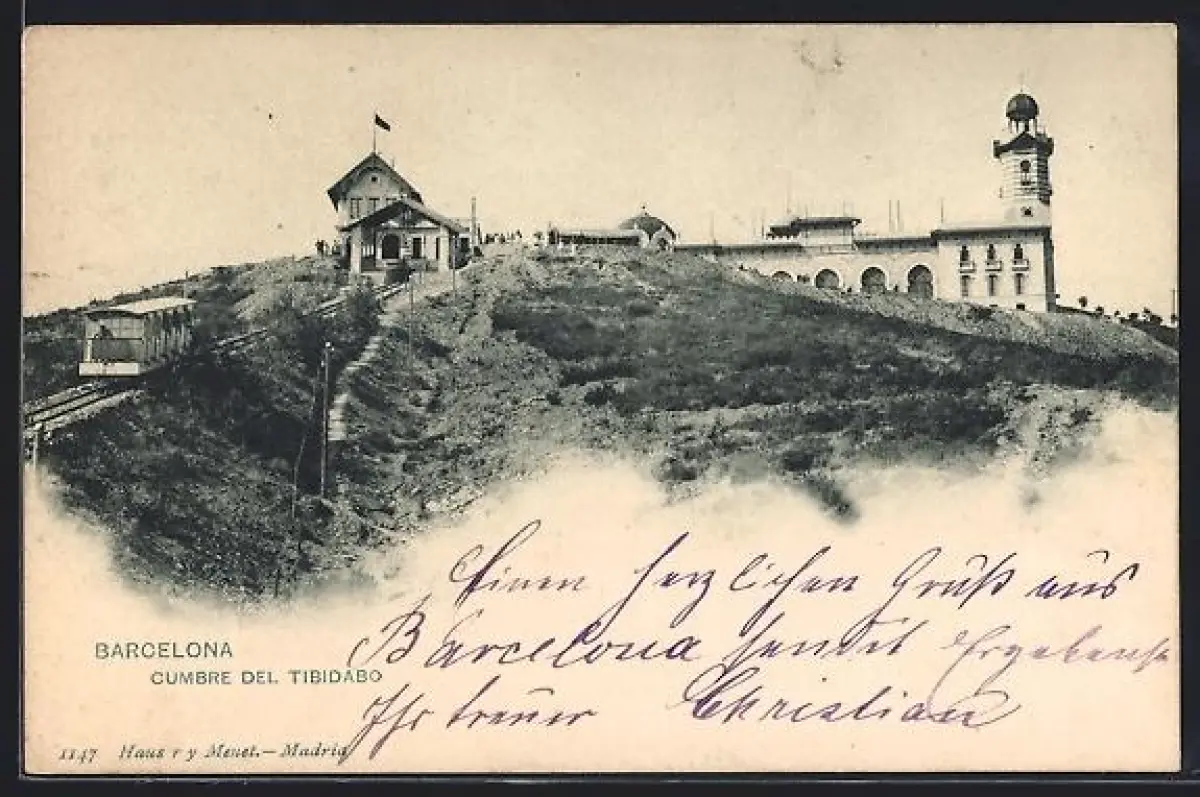 Einen herzlichen Gruß aus
Barcelona sendet Ergebenst
Ihr treuer Christian
BARCELONA
CUMBRE DEL TIBIDABO
1147 Haus r y Menet.— Madrid